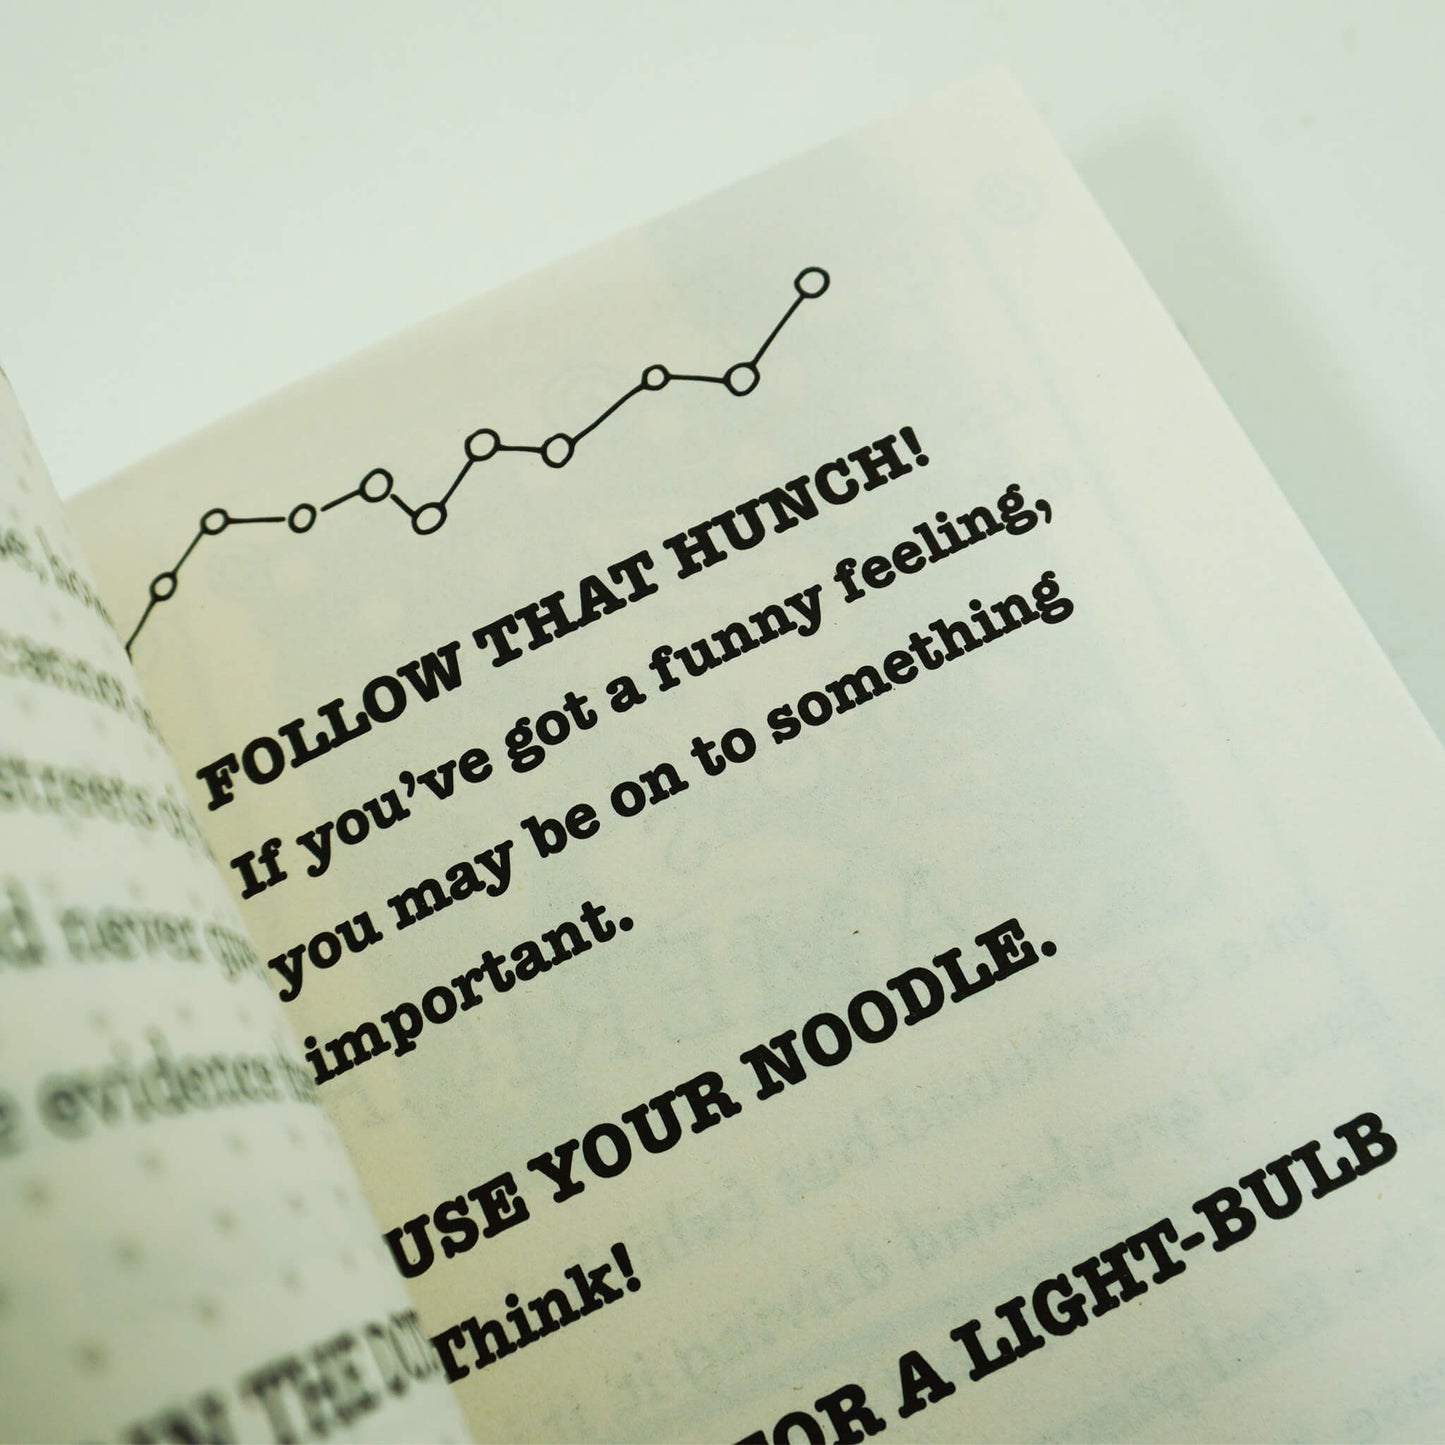 cannot
streets
never
evidence
THE
FOLLOW THAT HUNCH!
If you’ve got a funny feeling,
you may be on to something
important.
USE YOUR NOODLE.
Think!
FOR A LIGHT-BULB